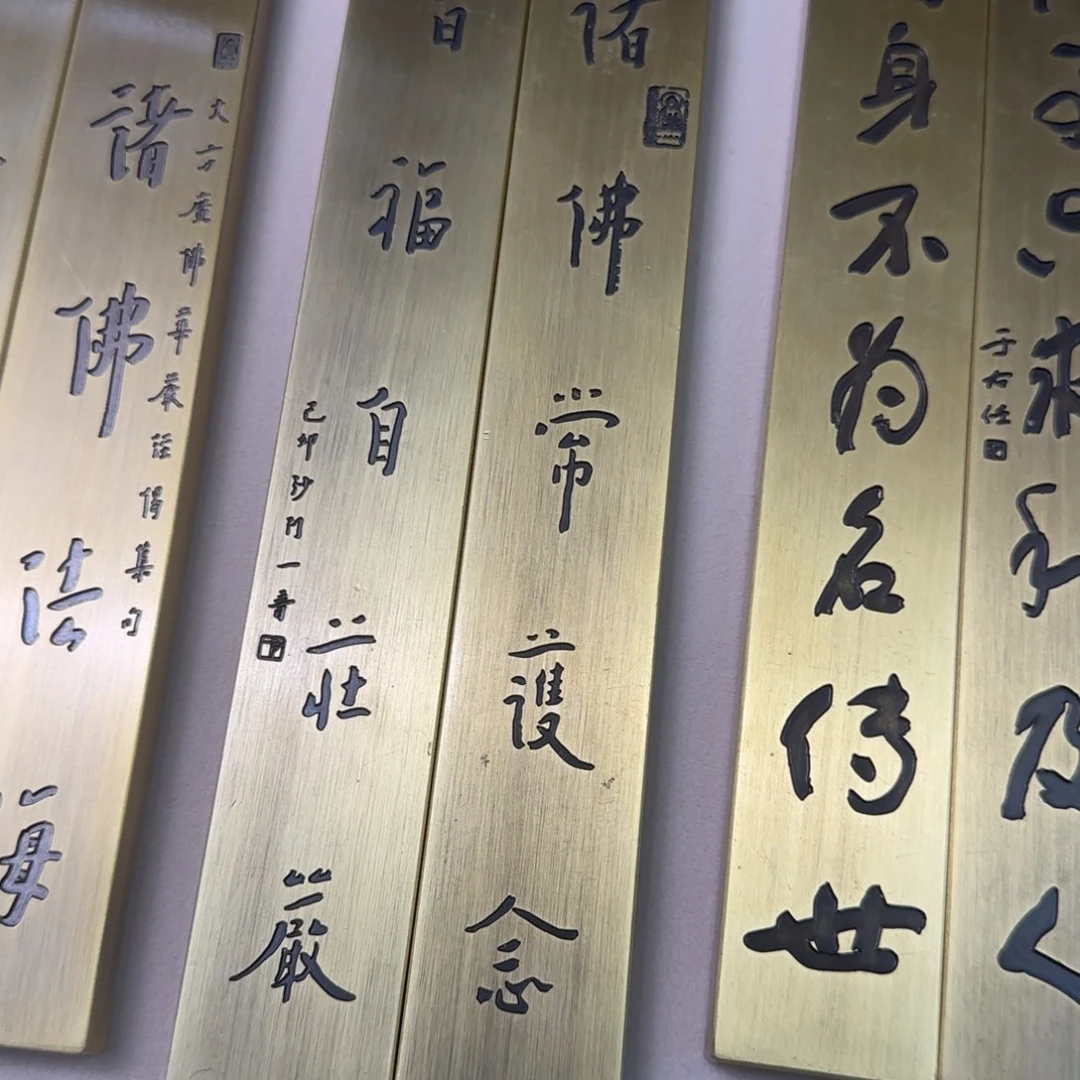 求利及人
于右任
身不為名傳世
諸佛常護念
福自莊嚴
己卯沙門一音
大方廣佛華嚴經偈集句
諸佛法海